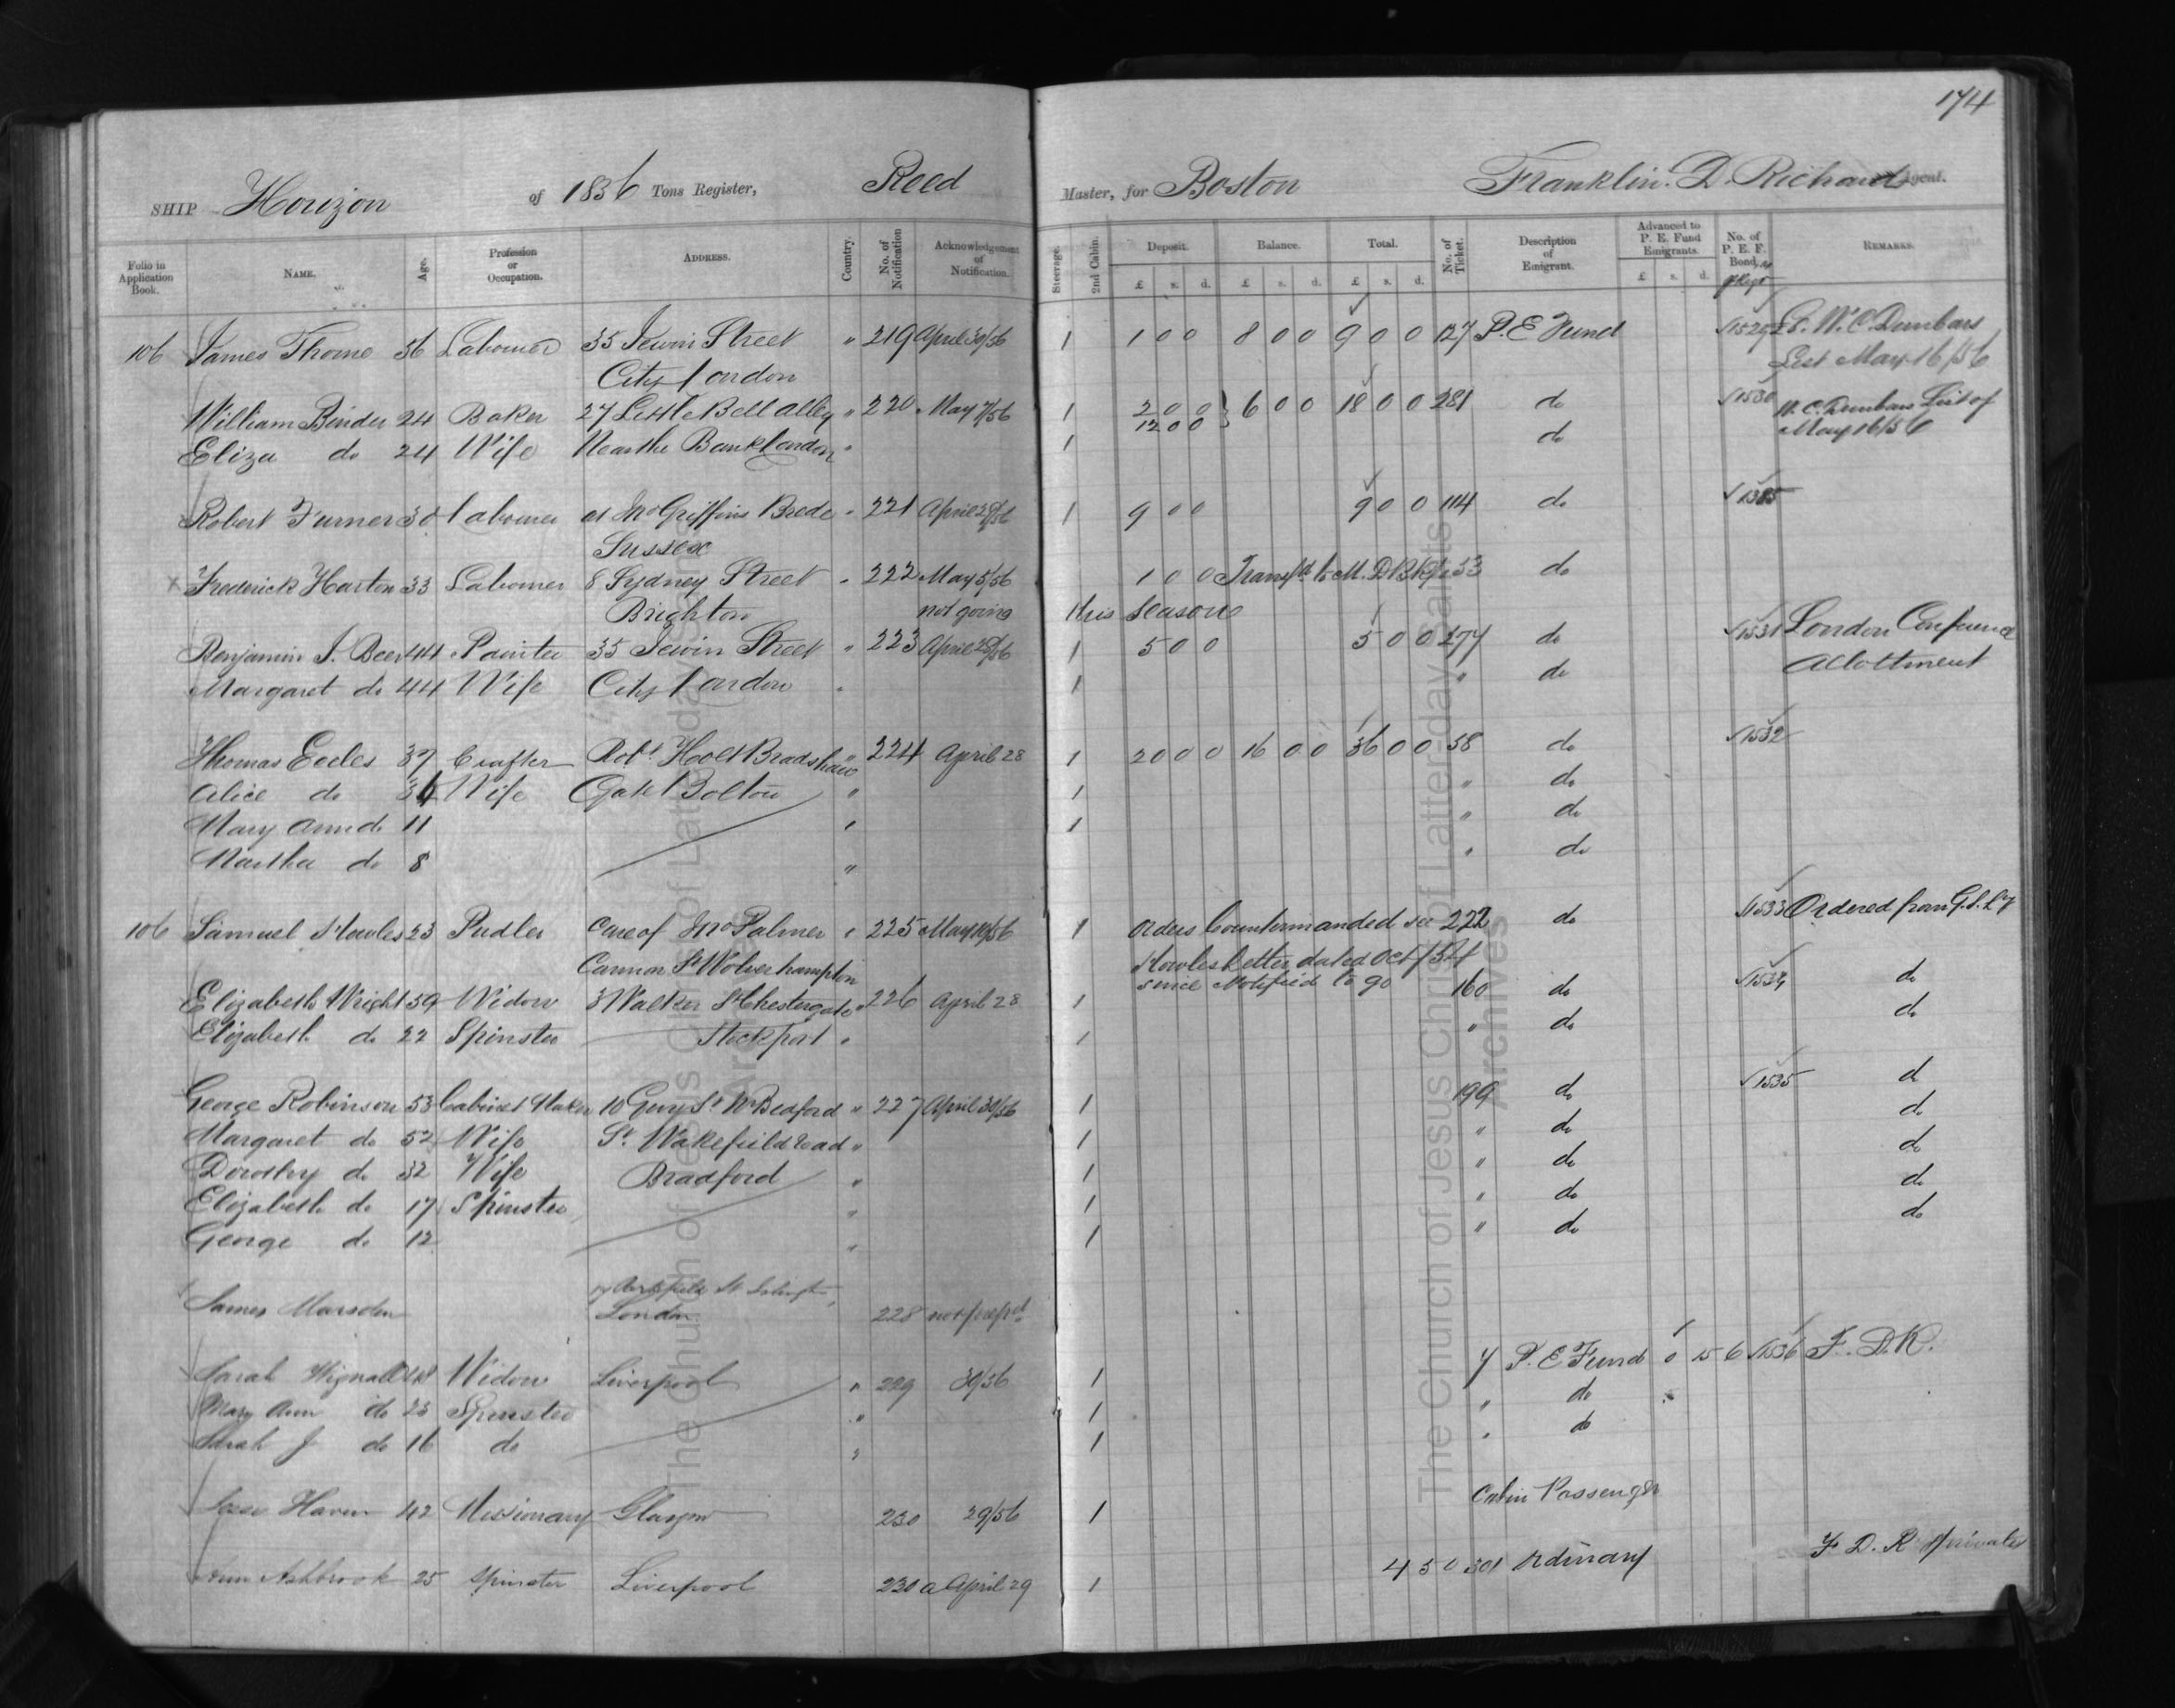 174
SHIP Horizon of 1836 Tons Register, Reed Master, for Boston Franklin. D. Richards Agent.
Folio in Application Book. NAME. Age. Profession or Occupation. ADDRESS. Country. No. of Notification Acknowledgement of Notification. Steerage. 2nd Cabin. Deposit. £ s. d. Balance. £ s. d. Total. £ s. d. No. of Ticket. Description of Emigrant. Advanced to P. E. Fund Emigrants. £ s. d. No. of P. E. F. Bond, REMARKS.
106 James Thorne 56 Labourer 35 Jewin Street " 219 April 30/56 1 1 0 0 8 0 0 9 0 0 127 P. E Fund W. C. Dunbars
City London List May 16/56
William Binder 24 Baker 27 Little Bell Alley " 220 May 7/56 1 2 0 0 6 0 0 18 0 0 281 do 1530 W. C. Dunbars List of
12 0 0
Eliza do 24 Wife Near the Bank London " 1 do May 16/56
Robert Turner 30 Labourer at Jno Griffins Brede " 221 April 29/56 1 9 0 0 9 0 0 114 do 1385
Sussex
Frederick Harton 33 Labourer 8 Sydney Street " 222 May 5/56 1 0 0 Transfd to M. D 53 do
Brighton not going this season
Benjamin J. Beer 44 Painter 35 Jewin Street " 223 April 28/56 1 5 0 0 5 0 0 277 do 1531 London Conference
Margaret do 44 Wife City London " 1 " do Allottment
Thomas Eccles 37 Crofter Robt Hoolt Bradshaw " 224 April 28 1 20 0 0 16 0 0 36 0 0 58 do 1532
Alice do 34 Wife Gate Bolton " 1 " do
Mary Ann do 11 " 1 " do
Martha do 8 " " do
106 Samuel Hawles 23 Pudler Care of Jno Palmer " 225 May 10/56 1 Orders Countermanded see 222 do 1533 Ordered from G. S. L. Cy
Cannon St Wolverhampton Letter dated Oct /54
since Notified to go
Elizabeth Wright 59 Widow 3 Walker St Chestergate " 226 April 28 1 160 do 1534 do
Elizabeth do 22 Spinster Stockport " 1 " do do
George Robinson 53 Cabinet Maker 10 Guy St Nr Bedford " 227 April 30/56 1 199 do 1535 do
Margaret do 52 Wife St Wakefield road " 1 " do do
Dorothy do 32 Wife Bradford " 1 " do do
Elizabeth do 17 Spinster " 1 " do do
George do 12 " 1 " do do
James Marsden London 228 not prepd
Sarah Wignall 48 Widow Liverpool " 229 30/56 1 7 P. E Fund 0 15 6 1536 F. D. R.
Mary Ann do 23 Spinster " 1 " do
Sarah J do 16 do " 1 " do
Jesse Haven 42 Missionary Glasgow 230 29/56 1 Cabin Passenger
Ann Ashbrook 25 Spinster Liverpool 230 a April 29 1 4 5 0 301 Ordinary F. D. R private
The Church of Jesus Christ of Latter-day Saints
Archives
The Church of Jesus Christ of Latter-day Saints
Archives